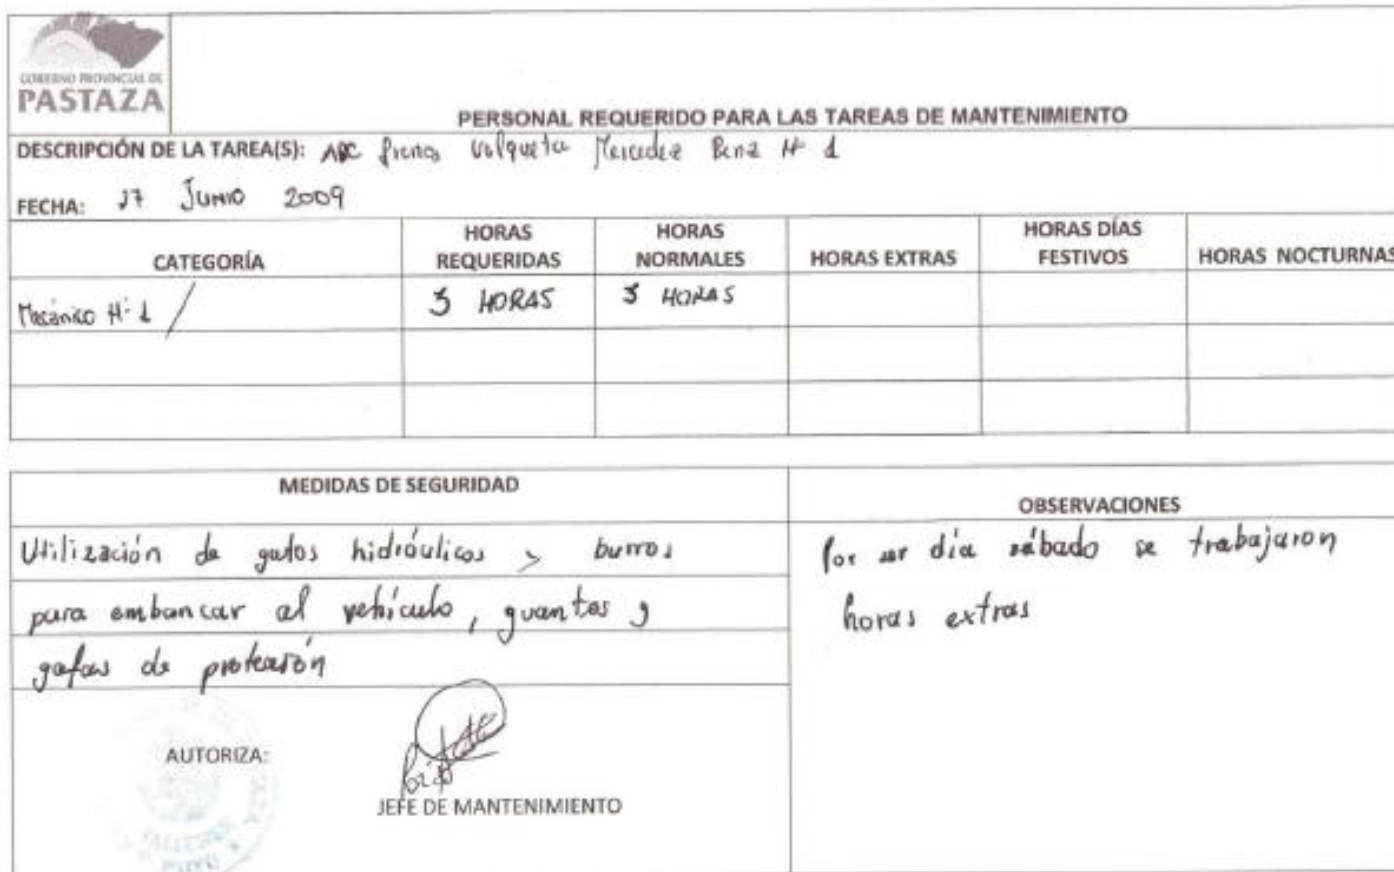 GOBIERNO PROVINCIAL DE
PASTAZA
PERSONAL REQUERIDO PARA LAS TAREAS DE MANTENIMIENTO
DESCRIPCIÓN DE LA TAREA(S): ABC frenos Volqueta Mercedez Benz Nº 1
FECHA: 27 JUNIO 2009
CATEGORÍA
HORAS REQUERIDAS
HORAS NORMALES
HORAS EXTRAS
HORAS DÍAS FESTIVOS
HORAS NOCTURNAS
Mecánico Nº 1 HORAS HORAS
MEDIDAS DE SEGURIDAD
Utilización de gatos hidráulicos y burros
para embancar al vehículo, guantes y
gafas de protección
OBSERVACIONES
Por ser día sábado se trabajaron
horas extras
AUTORIZA:
JEFE DE MANTENIMIENTO
TALLERES
PUYO